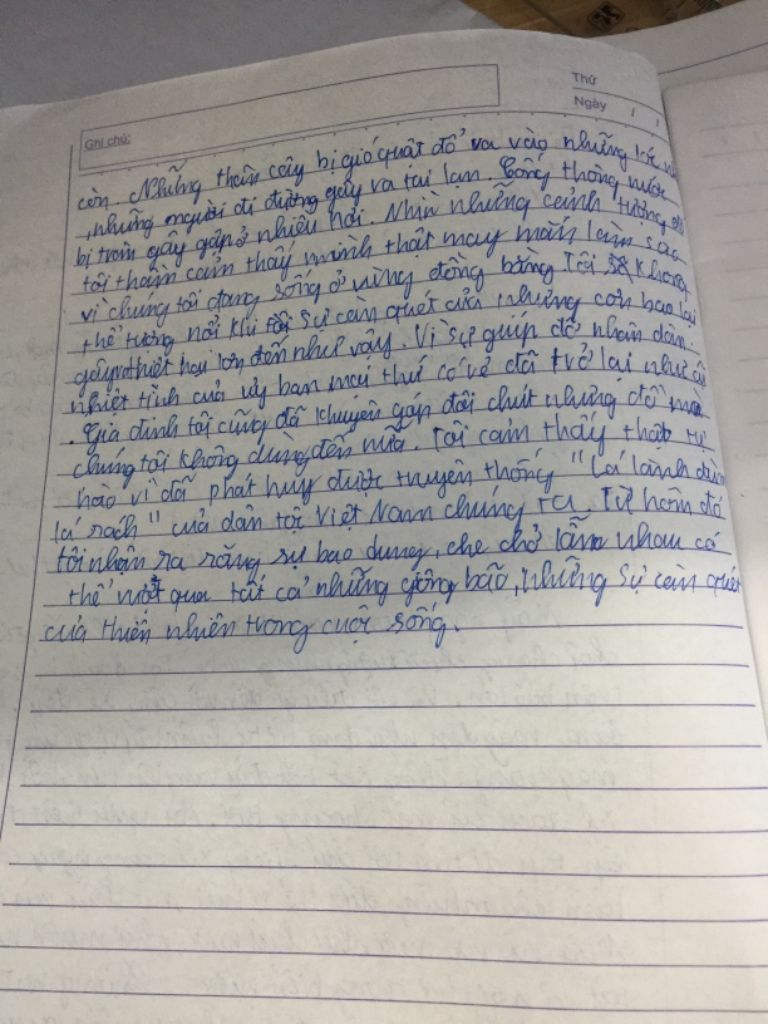 Thứ
Ngày / /
Ghi chú:
còn. Những thân cây bị gió quật đổ va vào những
, những người đi đường gây va tai lạn. Cống thông nước
bị tràn gây gập ở nhiều nơi. Nhìn những cảnh tượng đó
tôi thầm cảm thấy mình thật may mắn làm sao
vì chúng tôi đang sống ở vùng đồng bằng. Tôi không
thể tưởng nổi khi sự càn quét của những cơn bao lại
gây thiệt hại lớn đến như vậy. Vì sự guíp đỡ nhân dân
nhiệt tình của uỷ ban mọi thứ có vẻ đã trở lại như cũ
. Gia đình tôi cũng đã khuyên góp đôi chút những đồ mà
chúng tôi không dùng đến nữa. Tôi cảm thấy thật tự
hào vì đã phát huy được truyền thống "Lá lành đùm
lá rách" của dân tộc Việt Nam chúng ta. Từ hôm đó
tôi nhận ra rằng sự bao dung, che chở lẫn nhau có
thể vượt qua tất cả những giông bão, những sự càn quét
của thiên nhiên trong cuộc sống.